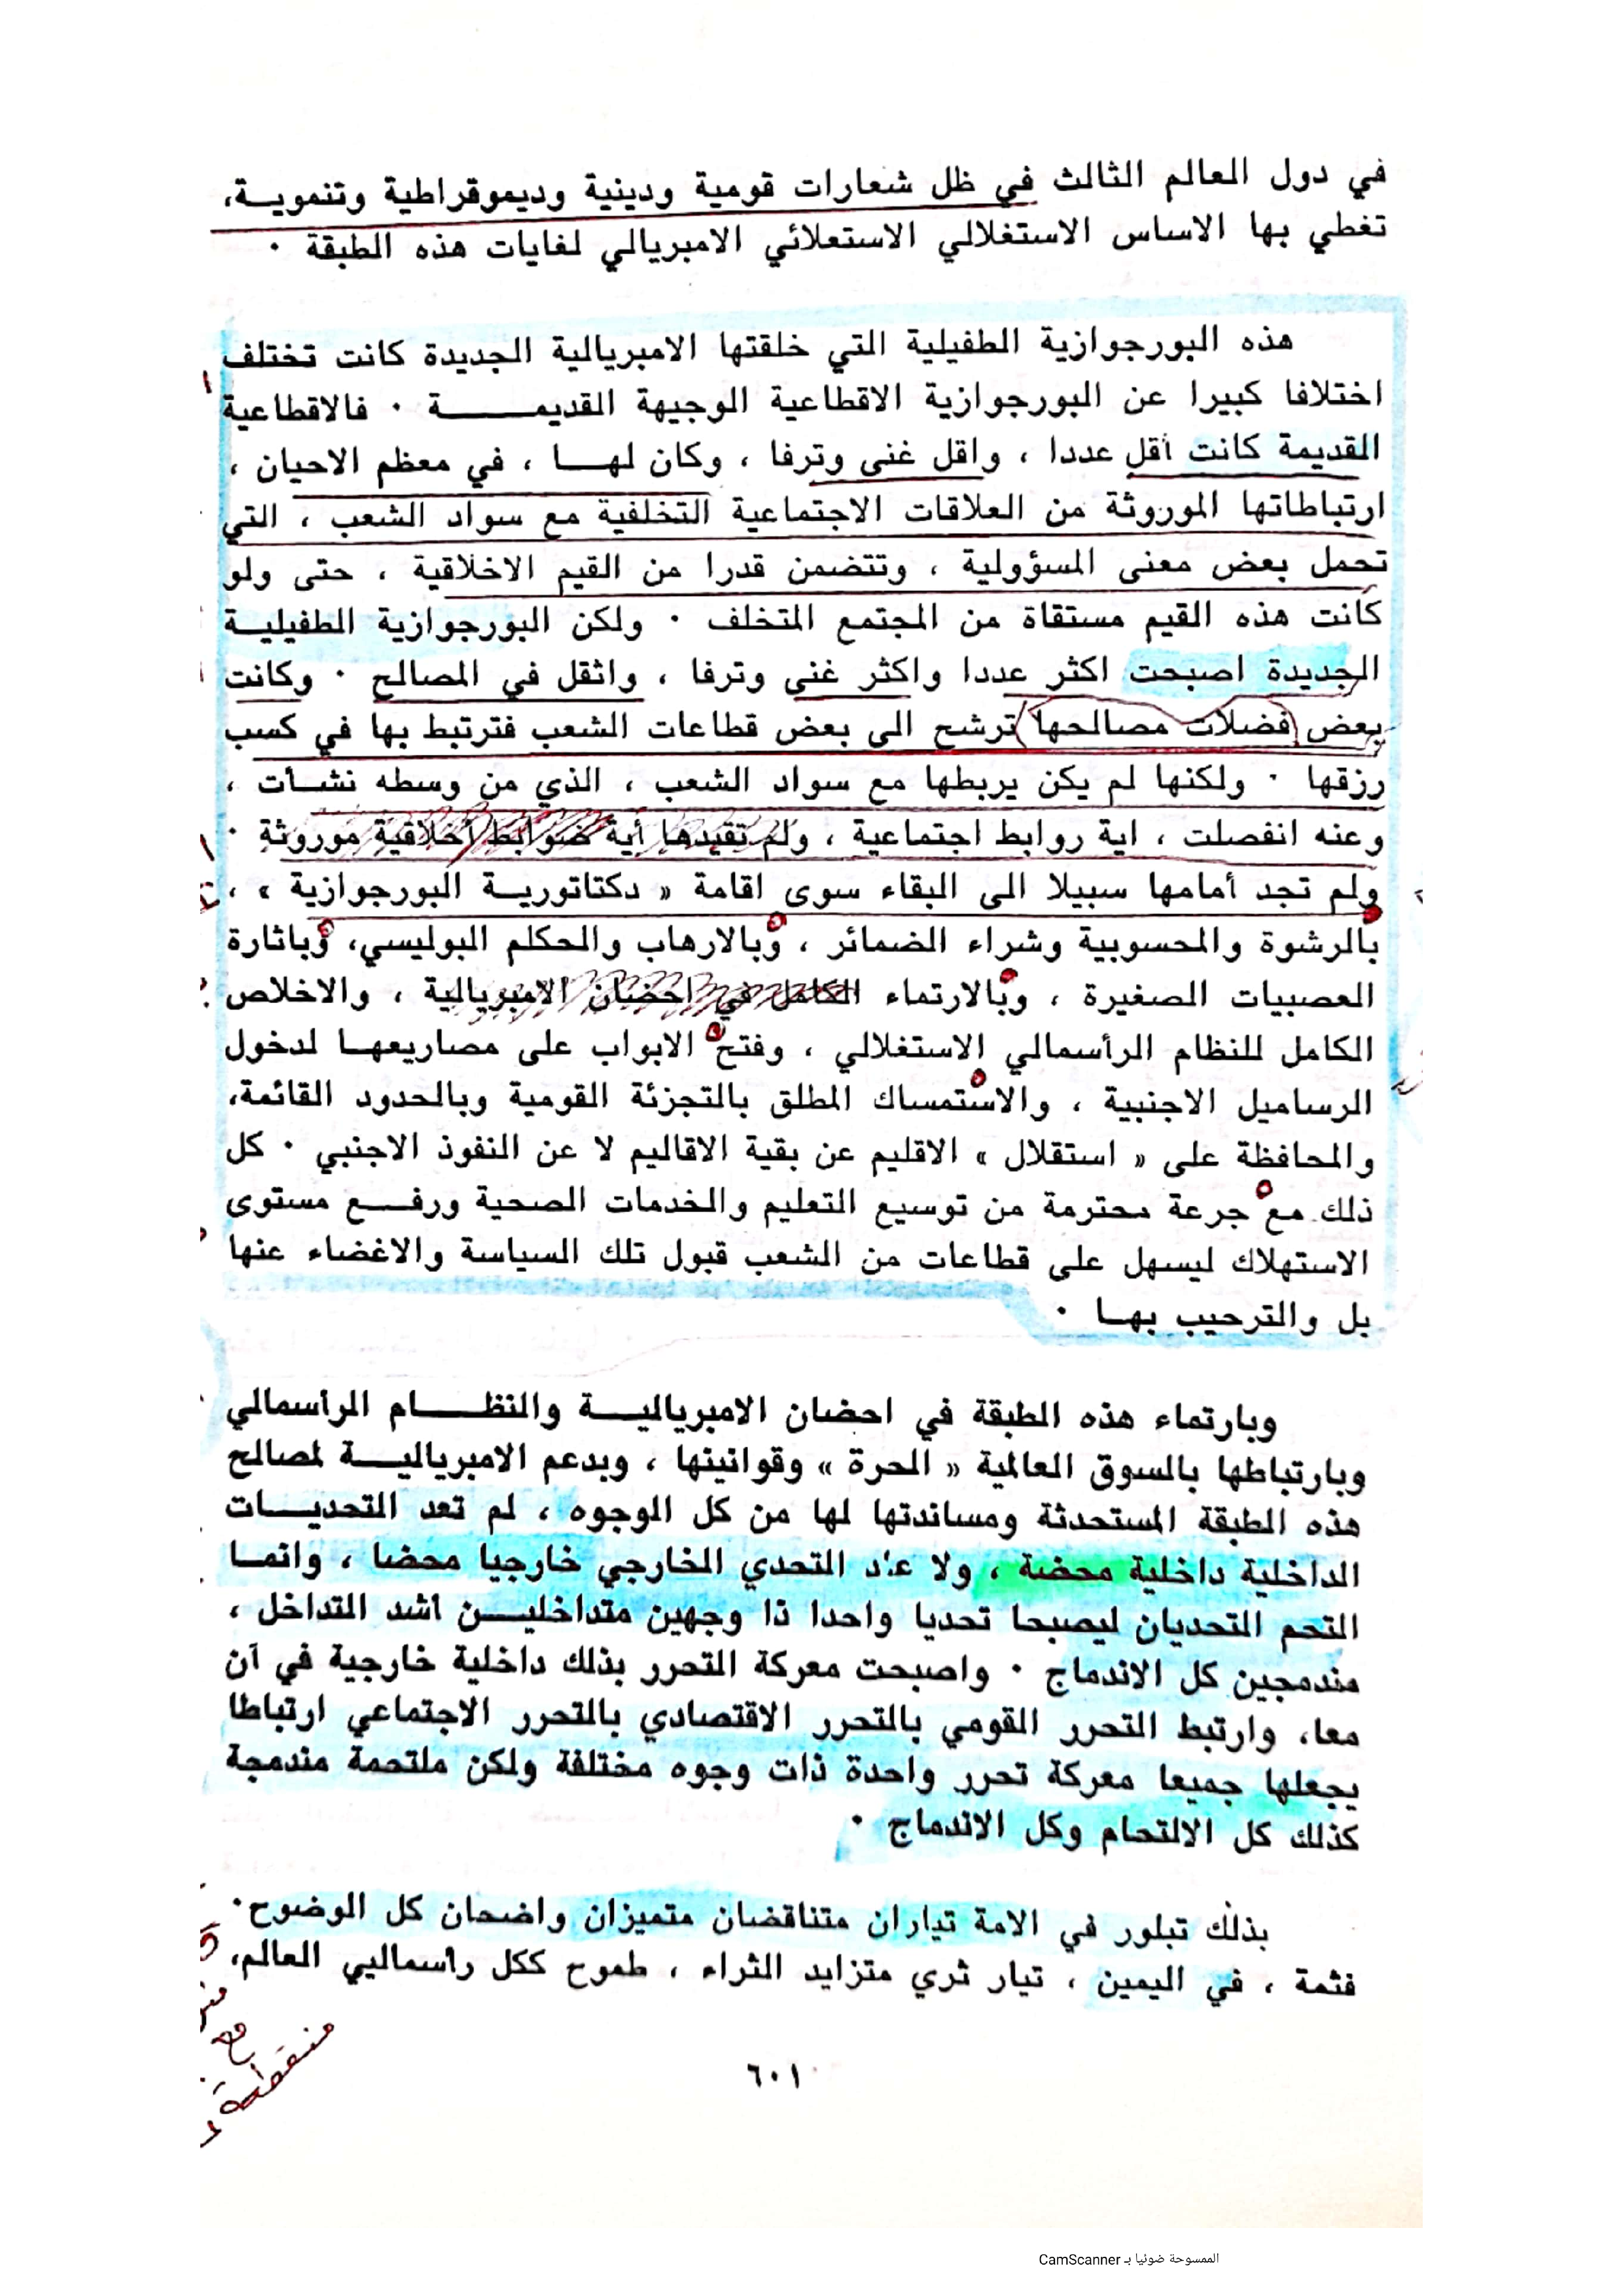 في دول العالم الثالث في ظل شعارات قومية ودينية وديموقراطية وتنمويــة،
تغطي بها الاساس الاستغلالي الاستعلائي الامبريالي لغايات هذه الطبقة ·
هذه البورجوازية الطفيلية التي خلقتها الامبريالية الجديدة كانت تختلف
اختلافا كبيرا عن البورجوازية الاقطاعية الوجيهة القديمــــــة · فالاقطاعية
القديمة كانت أقل عددا ، واقل غنى وترفا ، وكان لهــا ، في معظم الاحيان ،
ارتباطاتها الموروثة من العلاقات الاجتماعية التخلفية مع سواد الشعب ، التي
تحمل بعض معنى المسؤولية ، وتتضمن قدرا من القيم الاخلاقية ، حتى ولو
كانت هذه القيم مستقاة من المجتمع المتخلف · ولكن البورجوازية الطفيليــة
الجديدة اصبحت اكثر عددا واكثر غنى وترفا ، واثقل في المصالح · وكانت
بعض فضلات مصالحها ترشح الى بعض قطاعات الشعب فترتبط بها في كسب
رزقها · ولكنها لم يكن يربطها مع سواد الشعب ، الذي من وسطه نشــأت ،
وعنه انفصلت ، اية روابط اجتماعية ، ولم تقيدها أية ضوابط أخلاقية موروثة ·
ولم تجد أمامها سبيلا الى البقاء سوى اقامة « دكتاتوريــة البورجوازية » ،
بالرشوة والمحسوبية وشراء الضمائر ، وبالارهاب والحكلم البوليسي، وباثارة
العصبيات الصغيرة ، وبالارتماء الكامل في احضان الامبريالية ، والاخلاص
الكامل للنظام الرأسمالي الاستغلالي ، وفتح الابواب على مصاريعهــا لدخول
الرساميل الاجنبية ، والاستمساك المطلق بالتجزئة القومية وبالحدود القائمة،
والمحافظة على « استقلال » الاقليم عن بقية الاقاليم لا عن النفوذ الاجنبي · كل
ذلك مع جرعة محترمة من توسيع التعليم والخدمات الصحية ورفــع مستوى
الاستهلاك ليسهل على قطاعات من الشعب قبول تلك السياسة والاغضاء عنها
بل والترحيب بهــا ·
وبارتماء هذه الطبقة في احضان الامبرياليــة والنظــــام الرأسمالي
وبارتباطها بالسوق العالمية « الحرة » وقوانينها ، وبدعم الامبرياليــة لمصالح
هذه الطبقة المستحدثة ومساندتها لها من كل الوجوه ، لم تعد التحديــات
الداخلية داخلية محضة ، ولا عاد التحدي الخارجي خارجيا محضا ، وانمــا
التحم التحديان ليصبحا تحديا واحدا ذا وجهين متداخليــن اشد التداخل ،
مندمجين كل الاندماج · واصبحت معركة التحرر بذلك داخلية خارجية في آن
معا، وارتبط التحرر القومي بالتحرر الاقتصادي بالتحرر الاجتماعي ارتباطا
يجعلها جميعا معركة تحرر واحدة ذات وجوه مختلفة ولكن ملتحمة مندمجة
كذلك كل الالتحام وكل الاندماج ·
بذلك تبلور في الامة تياران متناقضان متميزان واضحان كل الوضوح·
فثمة ، في اليمين ، تيار ثري متزايد الثراء ، طموح ككل رأسماليي العالم،
مع
٦٠١
الممسوحة ضوئيا بـ CamScanner